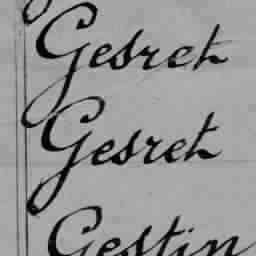 Gesret
Gesret
Gestin